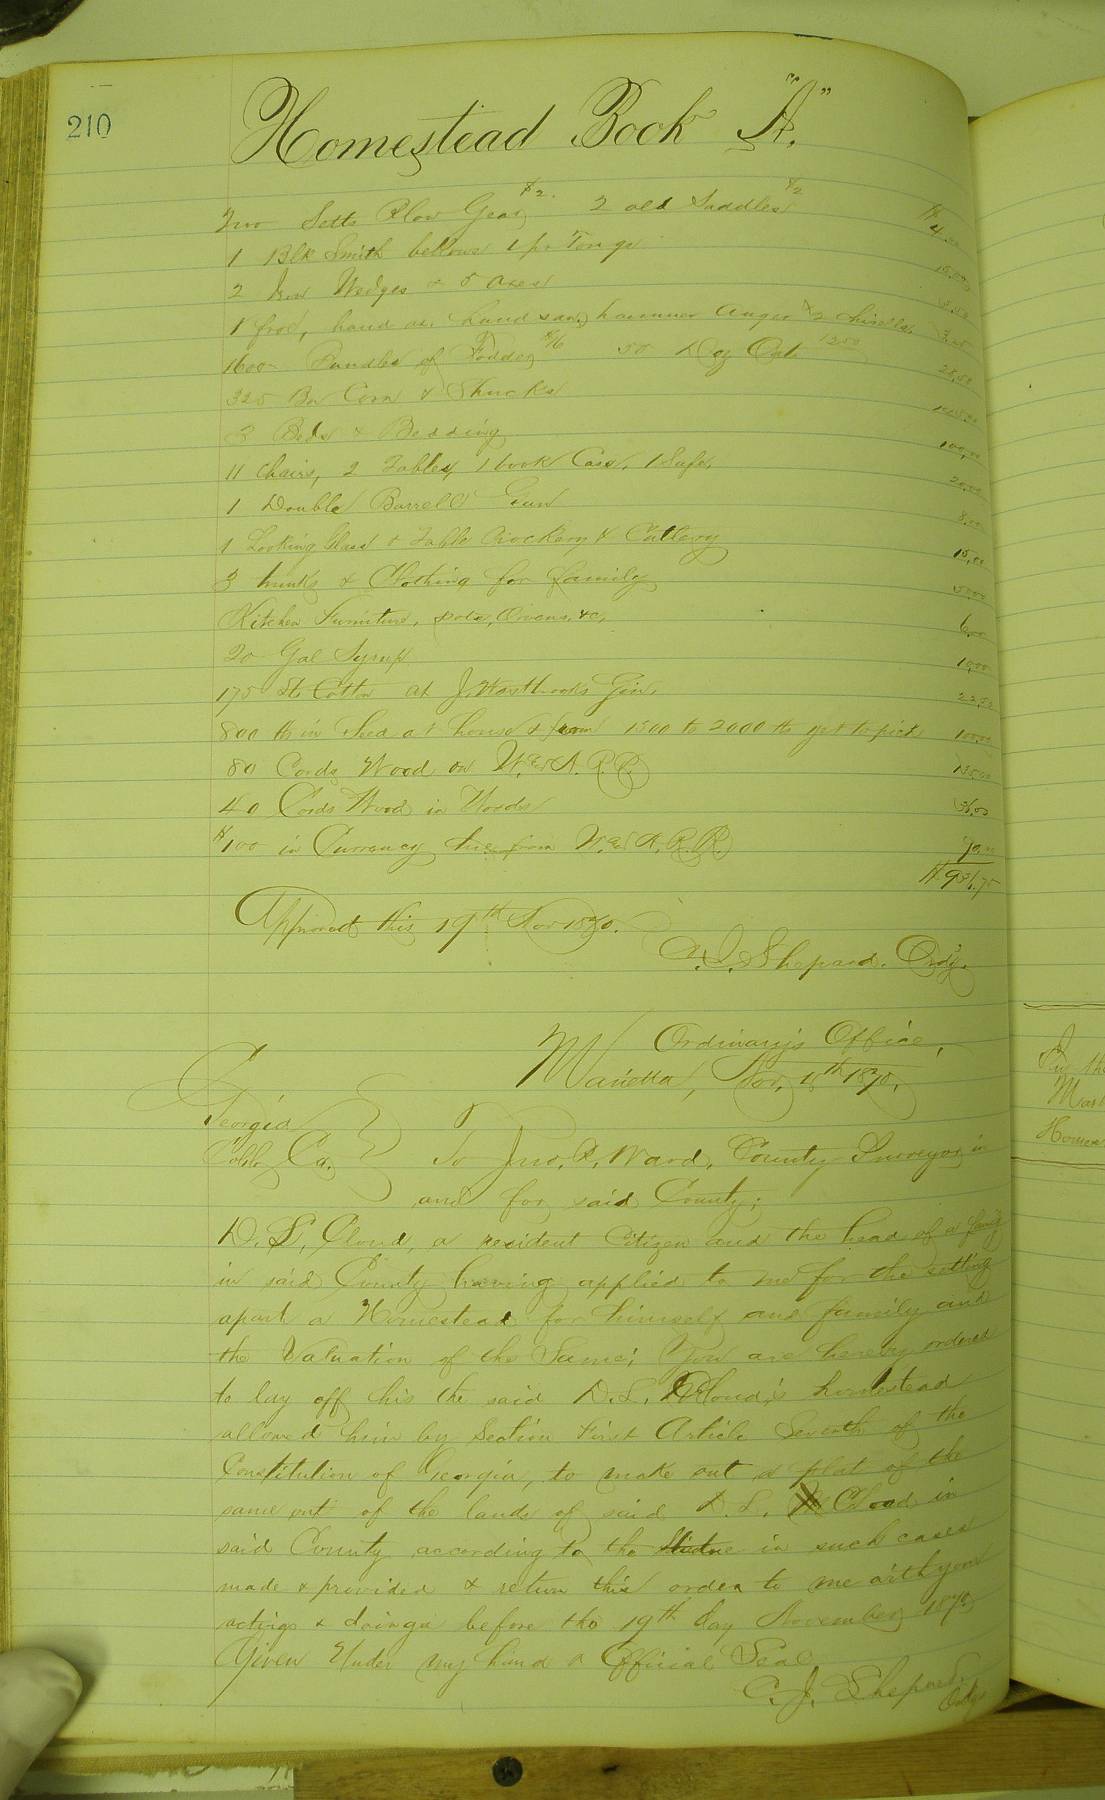 210
Homestead Book "A."
Two Setts Plow Gear $2. 2 old Saddles $2 $4.00
1 Blk Smith bellows 1 pr Tongs
2 Iron Wedges & 5 axes
1 frod, hand ax, hand saw, hammer auger & 2 chisels.
1600 Bundles of Fodder 50 Doz Oats 12.50 28.50
325 Bu Corn & Shucks
3 Beds & Bedding 100.00
11 Chairs, 2 Tables, 1 book Case, 1 Safe, 20.00
1 Double Barrell Gun 8.00
1 Looking Glass & Table Crockery & Cuttery 15.00
3 trunks & Clothing for family
Kitchen Furniture, pots, Ovens, &c, 6.00
20 Gal Syrup 10.00
175 lb Cotton at J. Westbrooks Gin, 22.50
800 lb in Seed at house & from 1500 to 2000 lb yet to pick
80 Cords Wood on W. & A. R. R.
40 Cords Wood in Woods
$100 in Currency due from W. & A. R. R. 70.00
Approved this 19th Nov 1870.
C. J. Shepard. Ordy.
Ordinary's Office,
Marietta, Nov, 15th 1870,
Georgia
Cobb Co. To Jno. R. Ward, County Surveyor in
and for said County;
D. L. Cloud, a resident Citizen and the head of a family
in said County having applied to me for the setting
apart a Homestead for himself and family and
the Valuation of the Same; You are hereby ordered
to lay off his the said D. L. Cloud's homestead
allowed him by Section First Article Seventh of the
Constitution of Georgia, to make out a plat of the
same out of the lands of said D. L. Cloud in
said County according to the Statue in such cases
made & provided & return this order to me with your
actings & doings before the 19th day November 1870
Given Under my hand & Official Seal
C. J. Shepard
Ordy